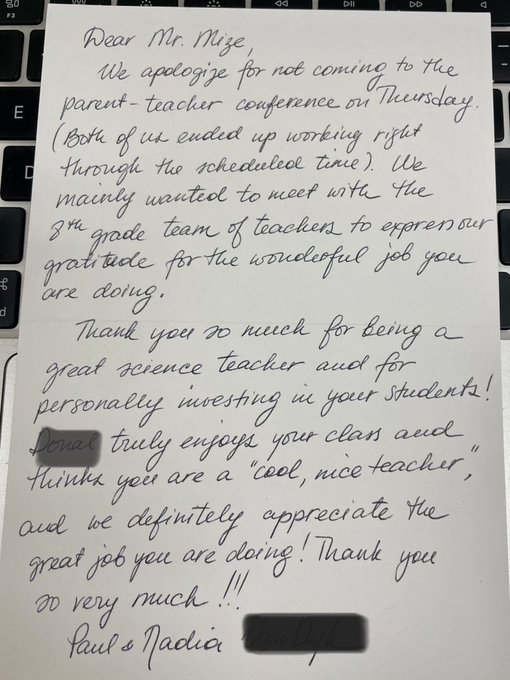 F3
Dear Mr. Mize,
We apologize for not coming to the
parent-teacher conference on Thursday.
E
(Both of us ended up working right
through the scheduled time). We
mainly wanted to meet with the
8th grade team of teachers to express our
gratitude for the wonderful job you
are doing.
Thank you so much for being a
great science teacher and for
personally investing in your students!
truly enjoys your class and
thinks you are a "cool, nice teacher",
and we definitely appreciate the
great job you are doing! Thank you
so very much!!!
Paul & Nadia